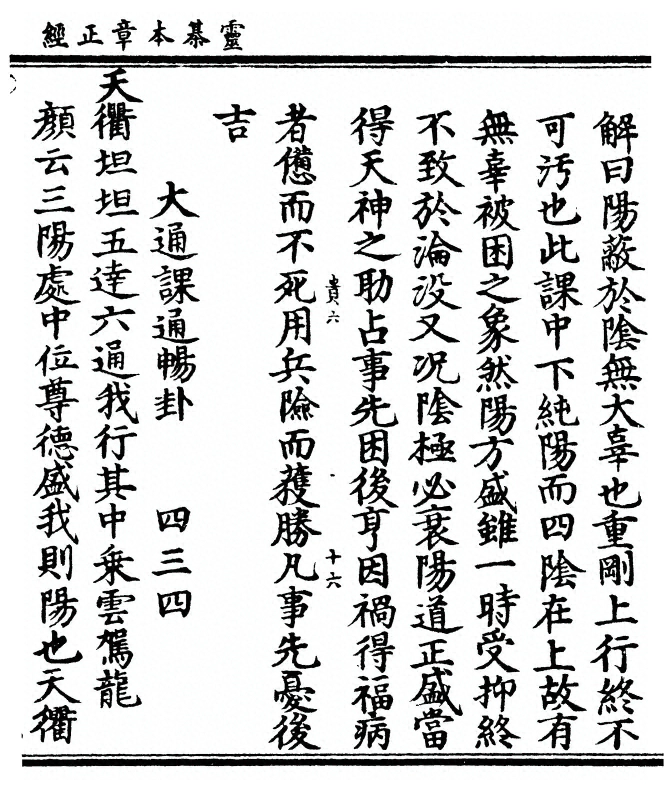 靈棊本章正經
解曰陽蔽於陰無大辜也重剛上行終不
可污也此課中下純陽而四陰在上故有
無辜被困之象然陽方盛雖一時受抑終
不致於淪沒又况陰極必衰陽道正盛當
得天神之助占事先困後亨因禍得福病
者憊而不死用兵險而獲勝凡事先憂後
吉
貴六
十六
大通課通暢卦 四三四
天衢坦坦五達六通我行其中乘雲駕龍
顏云三陽處中位尊德盛我則陽也天衢